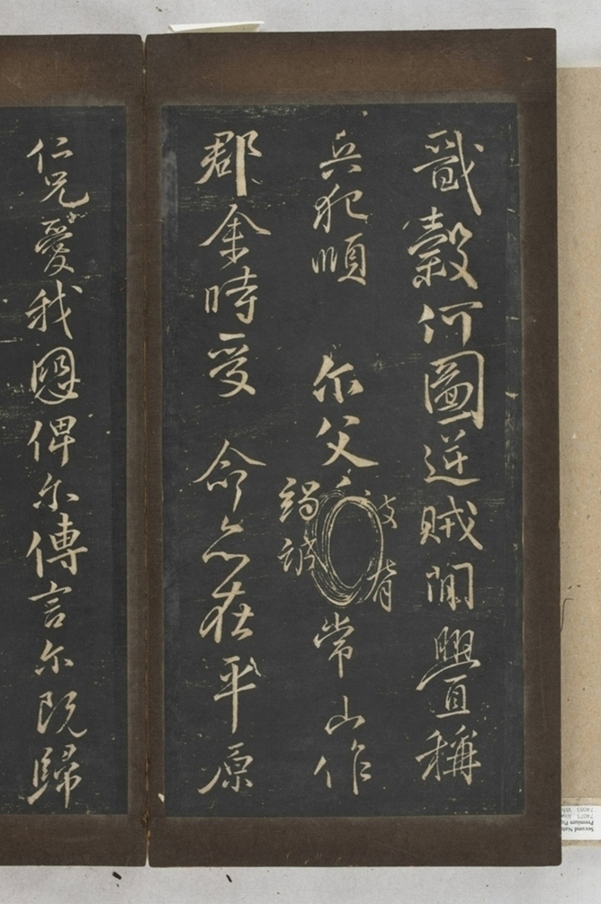 戩穀何圖逆賊間舋稱
兵犯順 尔父
竭誠
常山作
郡余時受 命亦在平原
仁兄愛我恩俾尔傳言尔既歸